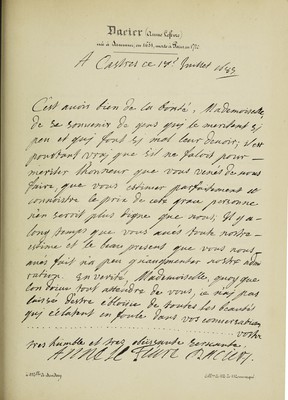 Dacier (Anne Lefèvre)
née à Saumur, en 1651, morte à Paris en 1720
A Castres ce 17e Juillet 1685
C'est avoir bien de la bonté, Mademoiselle,
de se souvenir de gens qui le meritent si
peu et qui font si mal leur devoir, c'est
pourtant vray que s'il ne faloit pour
meriter l'honneur que vous venés de nous
faire, que vous estimer parfaitement et
connoistre le prix de cete grace personne
n'en seroit plus digne que nous, il y a
long temps que vous avés toute nostre
estime et le beau present que vous nous
avés fait n'a peu qu'augmenter nostre admi
ration. En verité, Mademoiselle, quoy que
l'on doive tout attendre de vous, je n'ay pas
laissée d'estre éblouie de toutes les beautés
qui éclatent en foule dans vos conversations
vostre
tres humble et tres obeissante servante.
ANNE LE FEVRE DACIER.